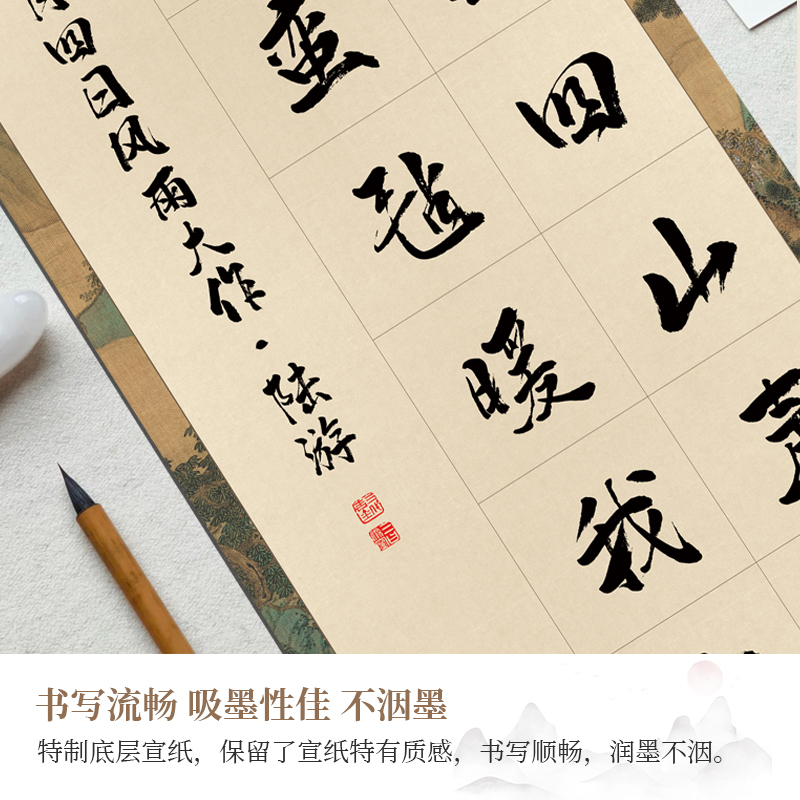 四山声
蛮毡暖我
四日风雨大作·陆游
书写流畅 吸墨性佳 不洇墨
特制底层宣纸，保留了宣纸特有质感，书写顺畅，润墨不洇。